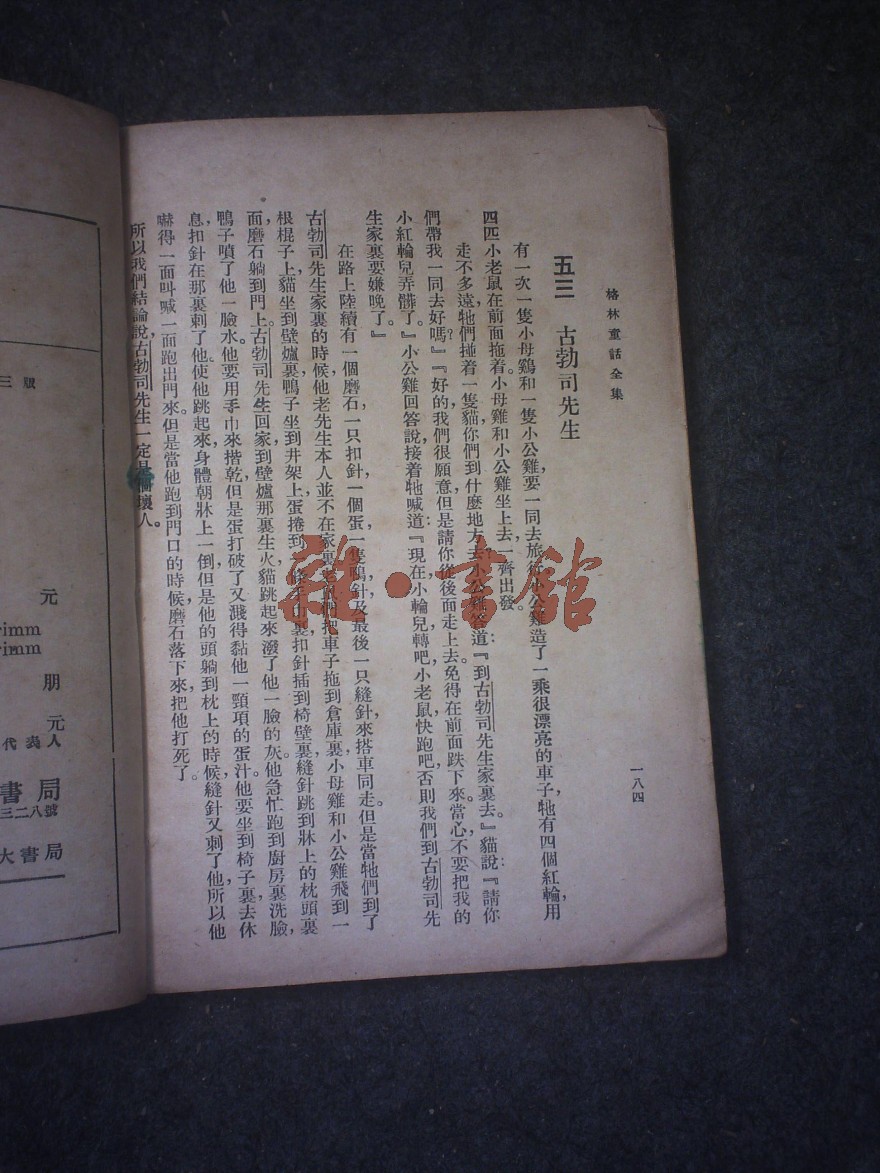 格林童話全集
一八四
五三　古勃司先生
有一次一隻小母鷄和一隻小公雞，要一同去旅行小公雞造了一乘很漂亮的車子，牠有四個紅輪，用
四匹小老鼠在前面拖着。小母雞和小公雞坐上去，一齊出發。
走不多遠，牠們撞着一隻貓，你們到什麼地方去？小公雞答道：『到古勃司先生家裏去。』貓說：『請你
們帶我一同去好嗎？』『好的，我們很願意，但是請你從後面走上去，免得在前面跌下來，當心，不要把我的
小紅輪兒弄髒了。』小公雞回答說，接着牠喊道：『現在小輪兒轉吧，小老鼠快跑吧，否則我們到古勃司先
生家裏要嫌晚了。』
在路上陸續有一個磨石，一只扣針，一個蛋，一隻鴨，及最後一只縫針，來搭車同走。但是當牠們到了
古勃司先生家裏的時候，他老先生本人並不在家裏。老鼠們把車子拖到倉庫裏，小母雞和小公雞飛到一
根棍子上，貓坐到壁爐裏，鴨子坐到井架上，蛋捲到一條手巾裏，扣針插到椅壁裏，縫針跳到牀上的枕頭裏
面，磨石躺到門上。古勃司先生回家，到壁爐那裏生火，貓跳起來，潑了他一臉的灰。他急忙跑到廚房裏洗臉，
鴨子噴了他一臉水。他要用手巾來揩乾，但是蛋打破了，又濺得黏他一頸項的蛋汁。他要坐到椅子裏去休
息，扣針在那裏刺了他，使他跳起來，身體朝牀上一倒，但是他的頭躺到枕上的時候，縫針又刺了他，所以他
嚇得一面叫喊，一面跑出門來。但是當他跑到門口的時候，磨石落下來，把他打死了。
所以我們結論說，古勃司先生一定是個壞人。
三版
元
rimm
rimm
朋
元
代表人
書局
三二八號
大書局
雜·書館